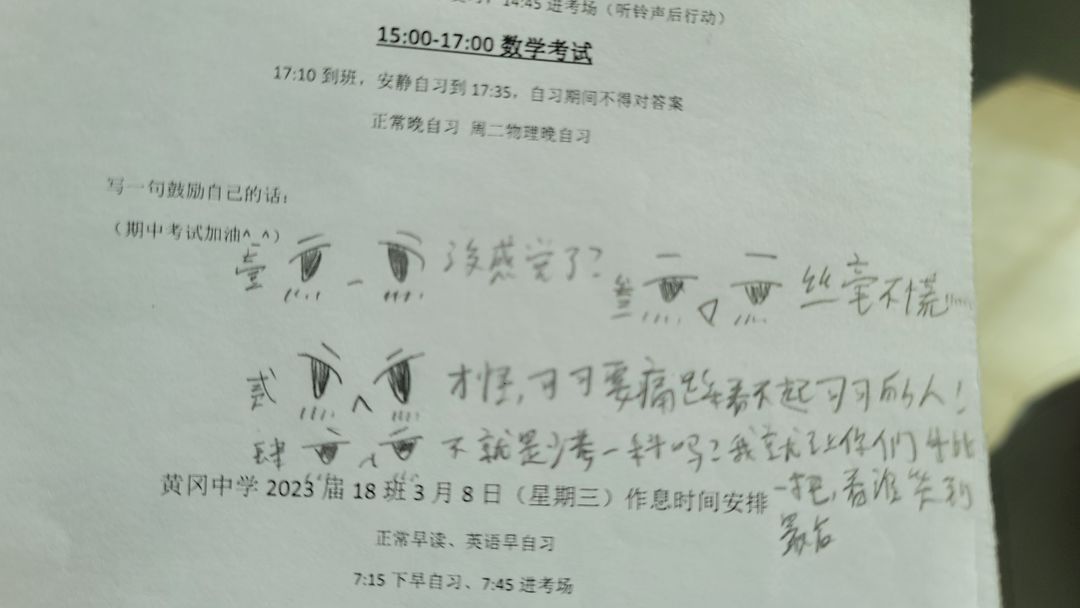 14:45 进考场（听铃声后行动）
15:00-17:00 数学考试
17:10 到班，安静自习到 17:35，自习期间不得对答案
正常晚自习 周二物理晚自习
写一句鼓励自己的话：
（期中考试加油^_^）
壹 没感觉了？
叁 丝毫不慌……
贰 才怪，可可要痛歼看不起习习的人！
肆 不就是少考一科吗？我就让你们
一把，看谁笑到
最后
黄冈中学 2023 届 18 班 3 月 8 日（星期三）作息时间安排
正常早读、英语早自习
7:15 下早自习、7:45 进考场